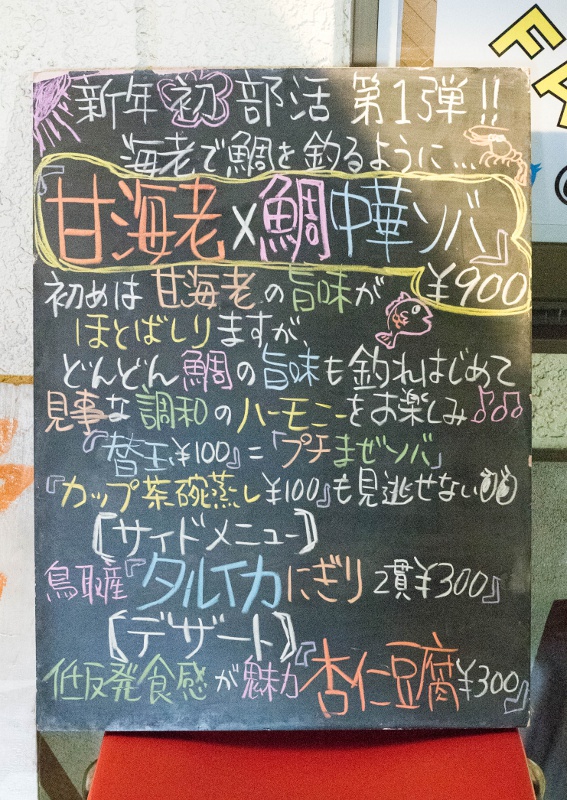 新年初部活 第1弾!!
海老で鯛を釣るように…
『甘海老×鯛中華ソバ』
¥900
初めは甘海老の旨味が
ほとばしりますが、
どんどん鯛の旨味も釣れはじめて
見事な調和のハーモニーをお楽しみ♫♫
『替玉¥100』=「プチまぜソバ」
『カップ茶碗蒸し¥100』も見逃せない
【サイドメニュー】
鳥取産『タルイカにぎり 2貫¥300』
【デザート】
低反発食感が魅力『杏仁豆腐¥300』
FA